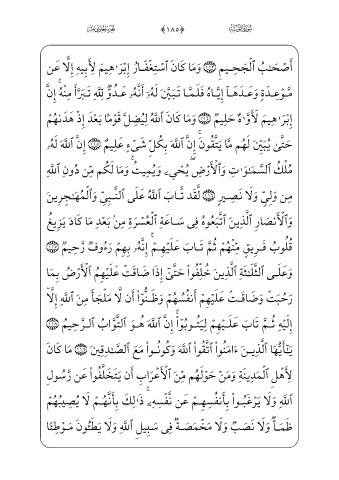 ﴿١٨٥﴾
أَصْحَٰبُ ٱلْجَحِيمِ ۝ وَمَا كَانَ ٱسْتِغْفَارُ إِبْرَٰهِيمَ لِأَبِيهِ إِلَّا عَن
مَّوْعِدَةٍ وَعَدَهَآ إِيَّاهُ فَلَمَّا تَبَيَّنَ لَهُۥٓ أَنَّهُۥ عَدُوٌّ لِّلَّهِ تَبَرَّأَ مِنْهُ ۚ إِنَّ
إِبْرَٰهِيمَ لَأَوَّٰهٌ حَلِيمٌ ۝ وَمَا كَانَ ٱللَّهُ لِيُضِلَّ قَوْمًۢا بَعْدَ إِذْ هَدَىٰهُمْ
حَتَّىٰ يُبَيِّنَ لَهُم مَّا يَتَّقُونَ ۚ إِنَّ ٱللَّهَ بِكُلِّ شَىْءٍ عَلِيمٌ ۝ إِنَّ ٱللَّهَ لَهُۥ
مُلْكُ ٱلسَّمَٰوَٰتِ وَٱلْأَرْضِ ۖ يُحْىِۦ وَيُمِيتُ ۚ وَمَا لَكُم مِّن دُونِ ٱللَّهِ
مِن وَلِىٍّ وَلَا نَصِيرٍ ۝ لَّقَد تَّابَ ٱللَّهُ عَلَى ٱلنَّبِىِّ وَٱلْمُهَٰجِرِينَ
وَٱلْأَنصَارِ ٱلَّذِينَ ٱتَّبَعُوهُ فِى سَاعَةِ ٱلْعُسْرَةِ مِنۢ بَعْدِ مَا كَادَ يَزِيغُ
قُلُوبُ فَرِيقٍ مِّنْهُمْ ثُمَّ تَابَ عَلَيْهِمْ ۚ إِنَّهُۥ بِهِمْ رَءُوفٌ رَّحِيمٌ ۝
وَعَلَى ٱلثَّلَٰثَةِ ٱلَّذِينَ خُلِّفُوا۟ حَتَّىٰٓ إِذَا ضَاقَتْ عَلَيْهِمُ ٱلْأَرْضُ بِمَا
رَحُبَتْ وَضَاقَتْ عَلَيْهِمْ أَنفُسُهُمْ وَظَنُّوٓا۟ أَن لَّا مَلْجَأَ مِنَ ٱللَّهِ إِلَّآ
إِلَيْهِ ثُمَّ تَابَ عَلَيْهِمْ لِيَتُوبُوٓا۟ ۚ إِنَّ ٱللَّهَ هُوَ ٱلتَّوَّابُ ٱلرَّحِيمُ ۝
يَٰٓأَيُّهَا ٱلَّذِينَ ءَامَنُوا۟ ٱتَّقُوا۟ ٱللَّهَ وَكُونُوا۟ مَعَ ٱلصَّٰدِقِينَ ۝ مَا كَانَ
لِأَهْلِ ٱلْمَدِينَةِ وَمَنْ حَوْلَهُم مِّنَ ٱلْأَعْرَابِ أَن يَتَخَلَّفُوا۟ عَن رَّسُولِ
ٱللَّهِ وَلَا يَرْغَبُوا۟ بِأَنفُسِهِمْ عَن نَّفْسِهِۦ ۚ ذَٰلِكَ بِأَنَّهُمْ لَا يُصِيبُهُمْ
ظَمَأٌ وَلَا نَصَبٌ وَلَا مَخْمَصَةٌ فِى سَبِيلِ ٱللَّهِ وَلَا يَطَـُٔونَ مَوْطِئًا